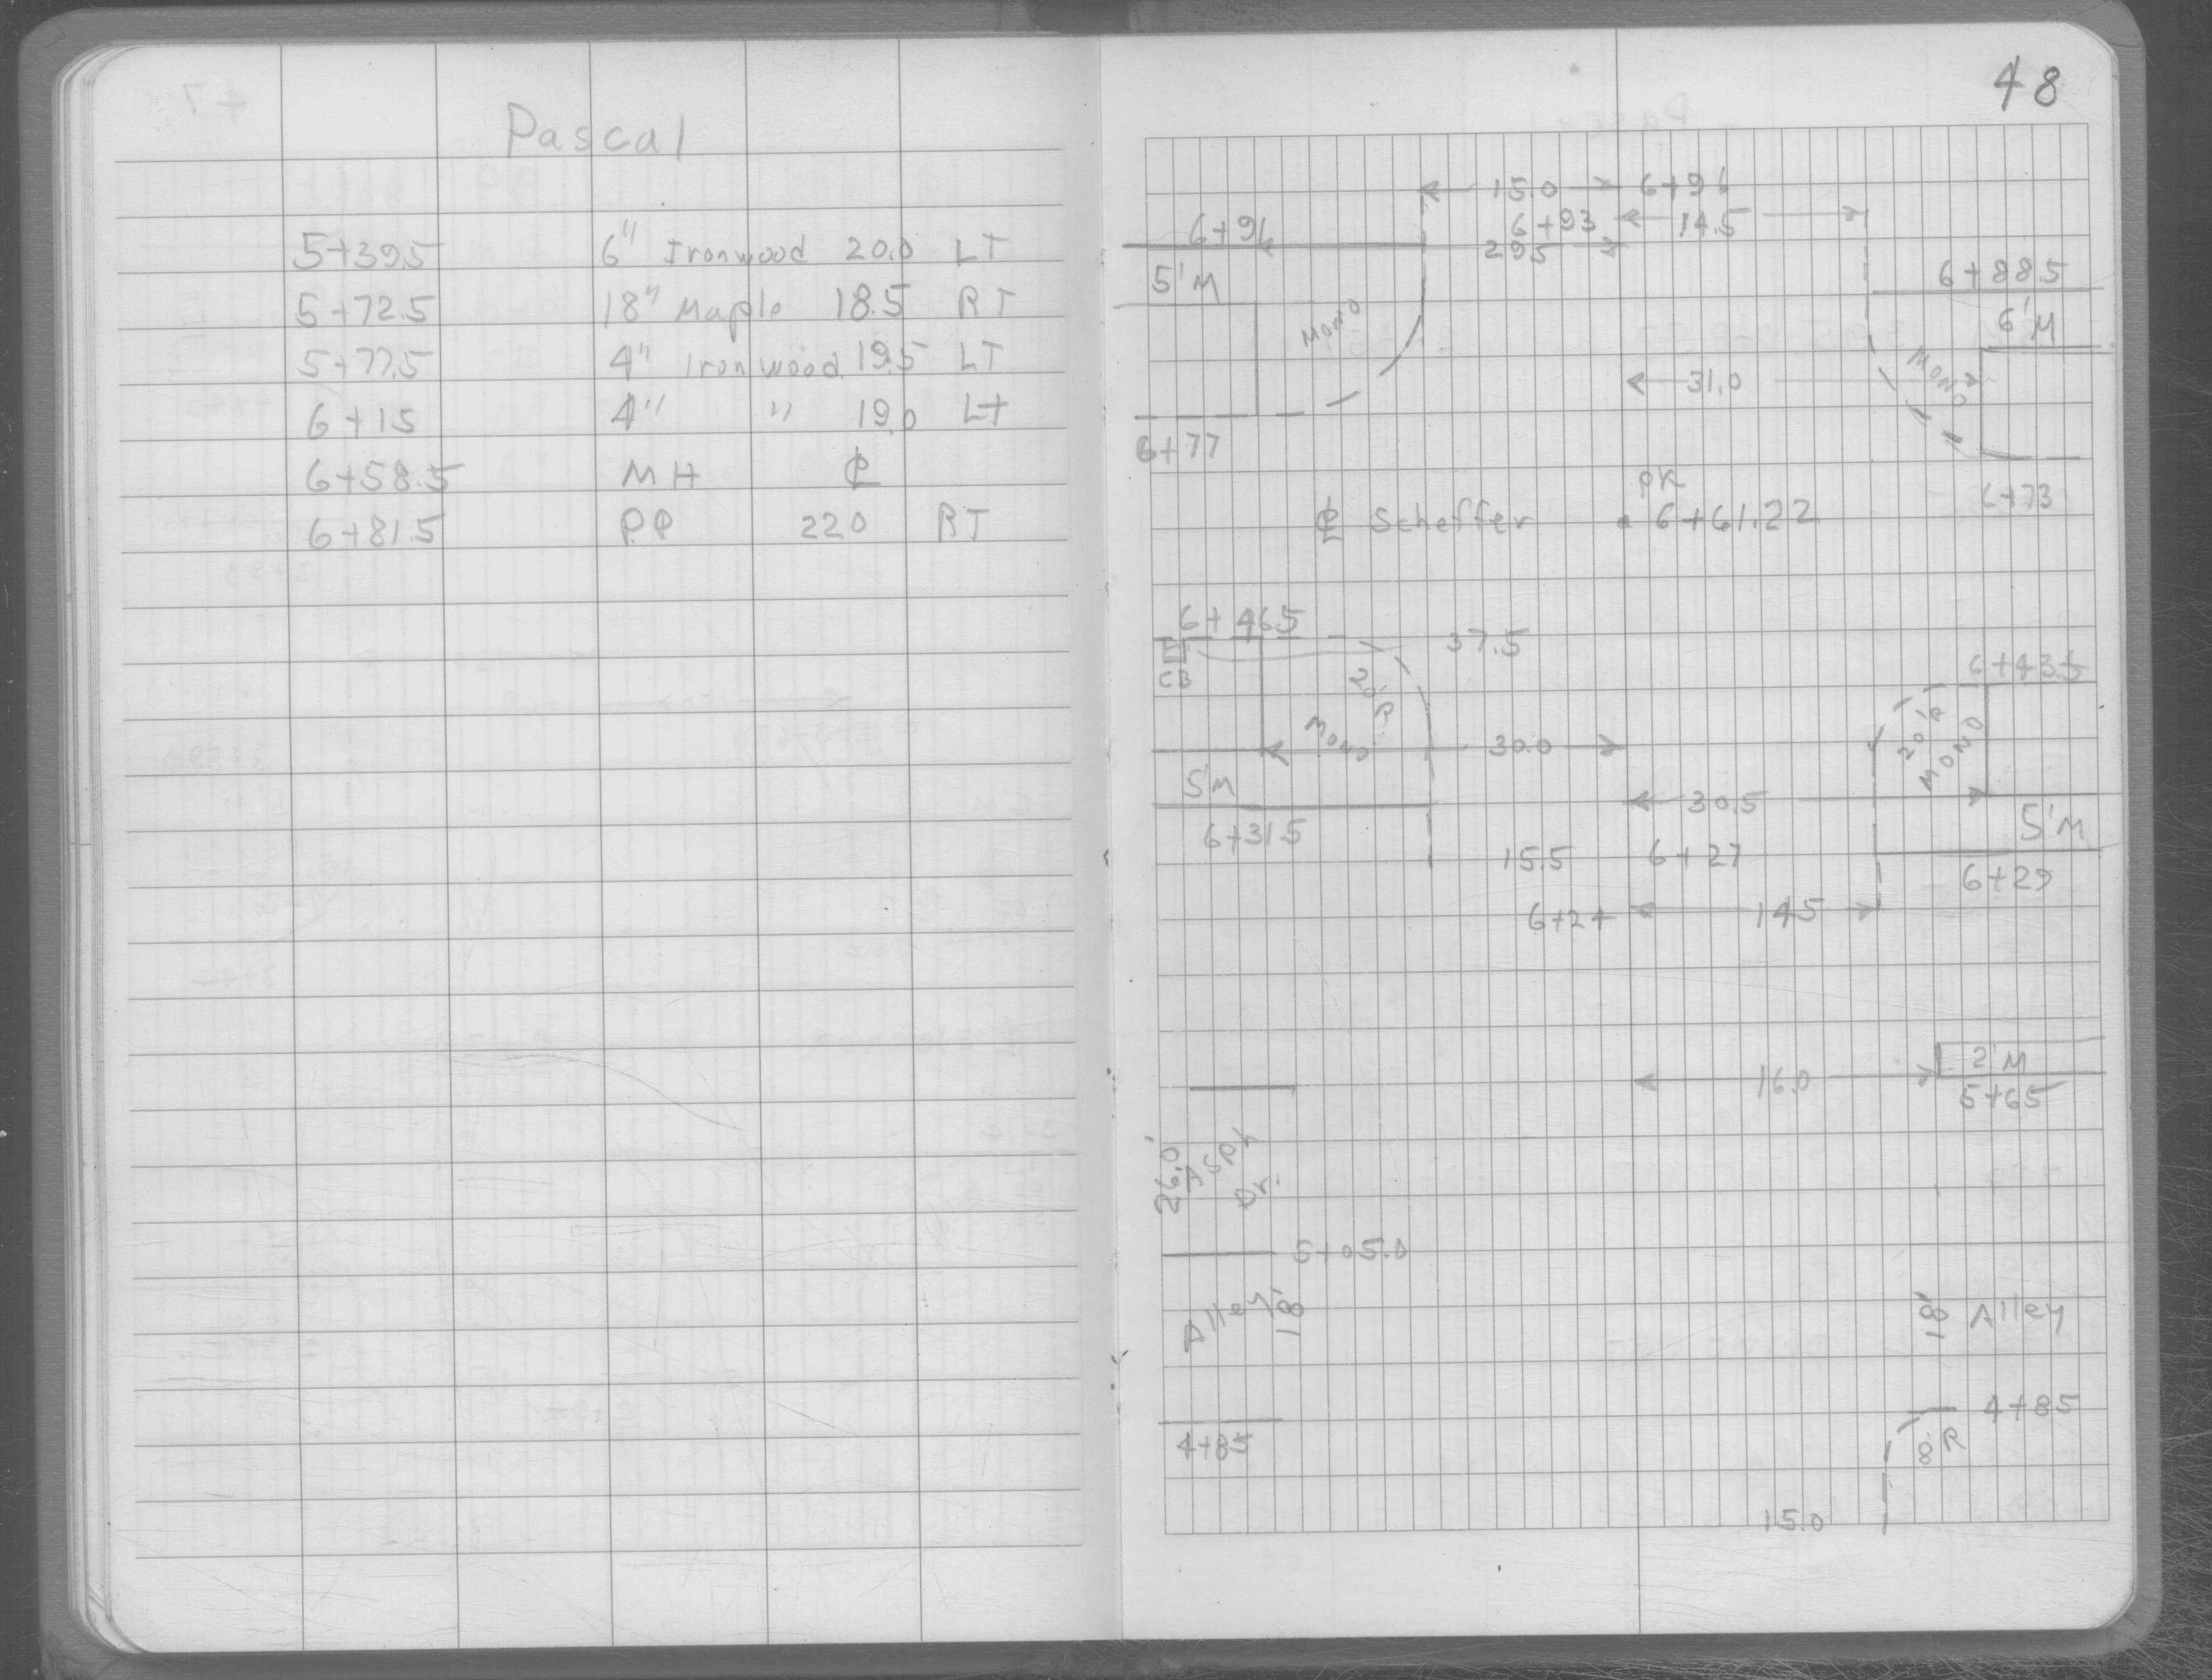 Pascal
5+39.5 6" Ironwood 20.0 LT
5+72.5 18" Maple 18.5 RT
5+77.5 4" Ironwood 19.5 LT
6+15 4" " 19.0 LT
6+58.5 MH ℄
6+81.5 P.P 22.0 RT
48
15.0 6+96
6+96 6+93 14.5
29.5
5'M
6+88.5
6'M
MONO
MONO
31.0
6+77
PK
6+73
℄ Scheffer 6+61.22
6+46.5
37.5
CB
20'R
6+43.5
20'R
MONO
MONO
30.0
5'M
30.5
6+31.5
5'M
15.5 6+27
6+29
6+24 14.5
2'M
16.0
5+65
26.0'
Asph
Dr.
5+05.0
Alley 18'
18' Alley
4+85
4+85
8'R
15.0